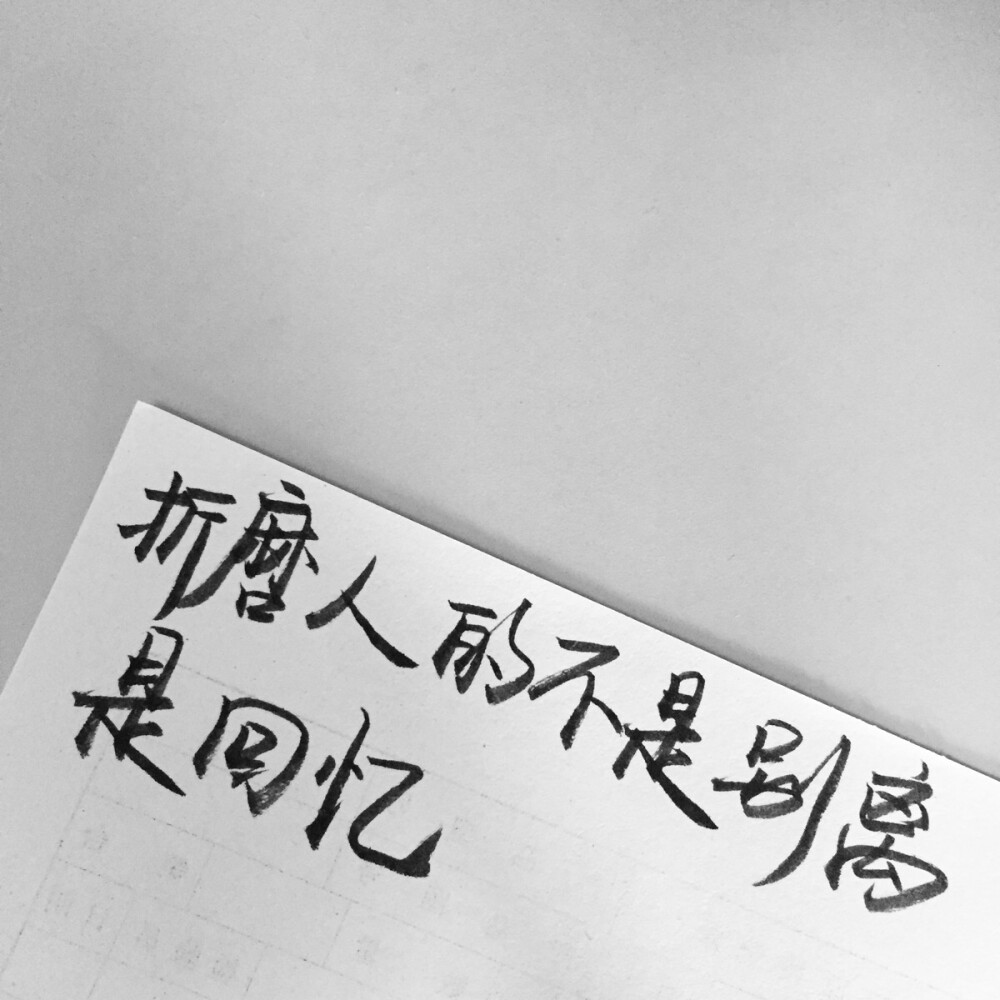 折磨人的不是别离
是回忆